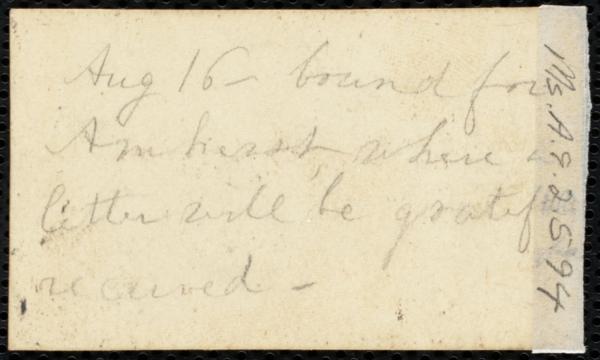 Aug 16 - bound for
Amherst, where a
letter will be gratef
received -
Ms.A.9.2.5.94